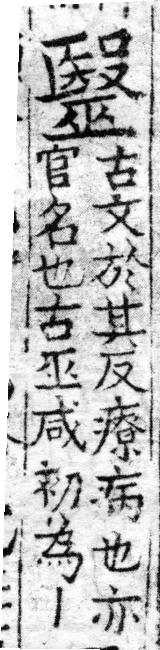 毉
古文於其反療病也亦
官名也古巫咸初為丨